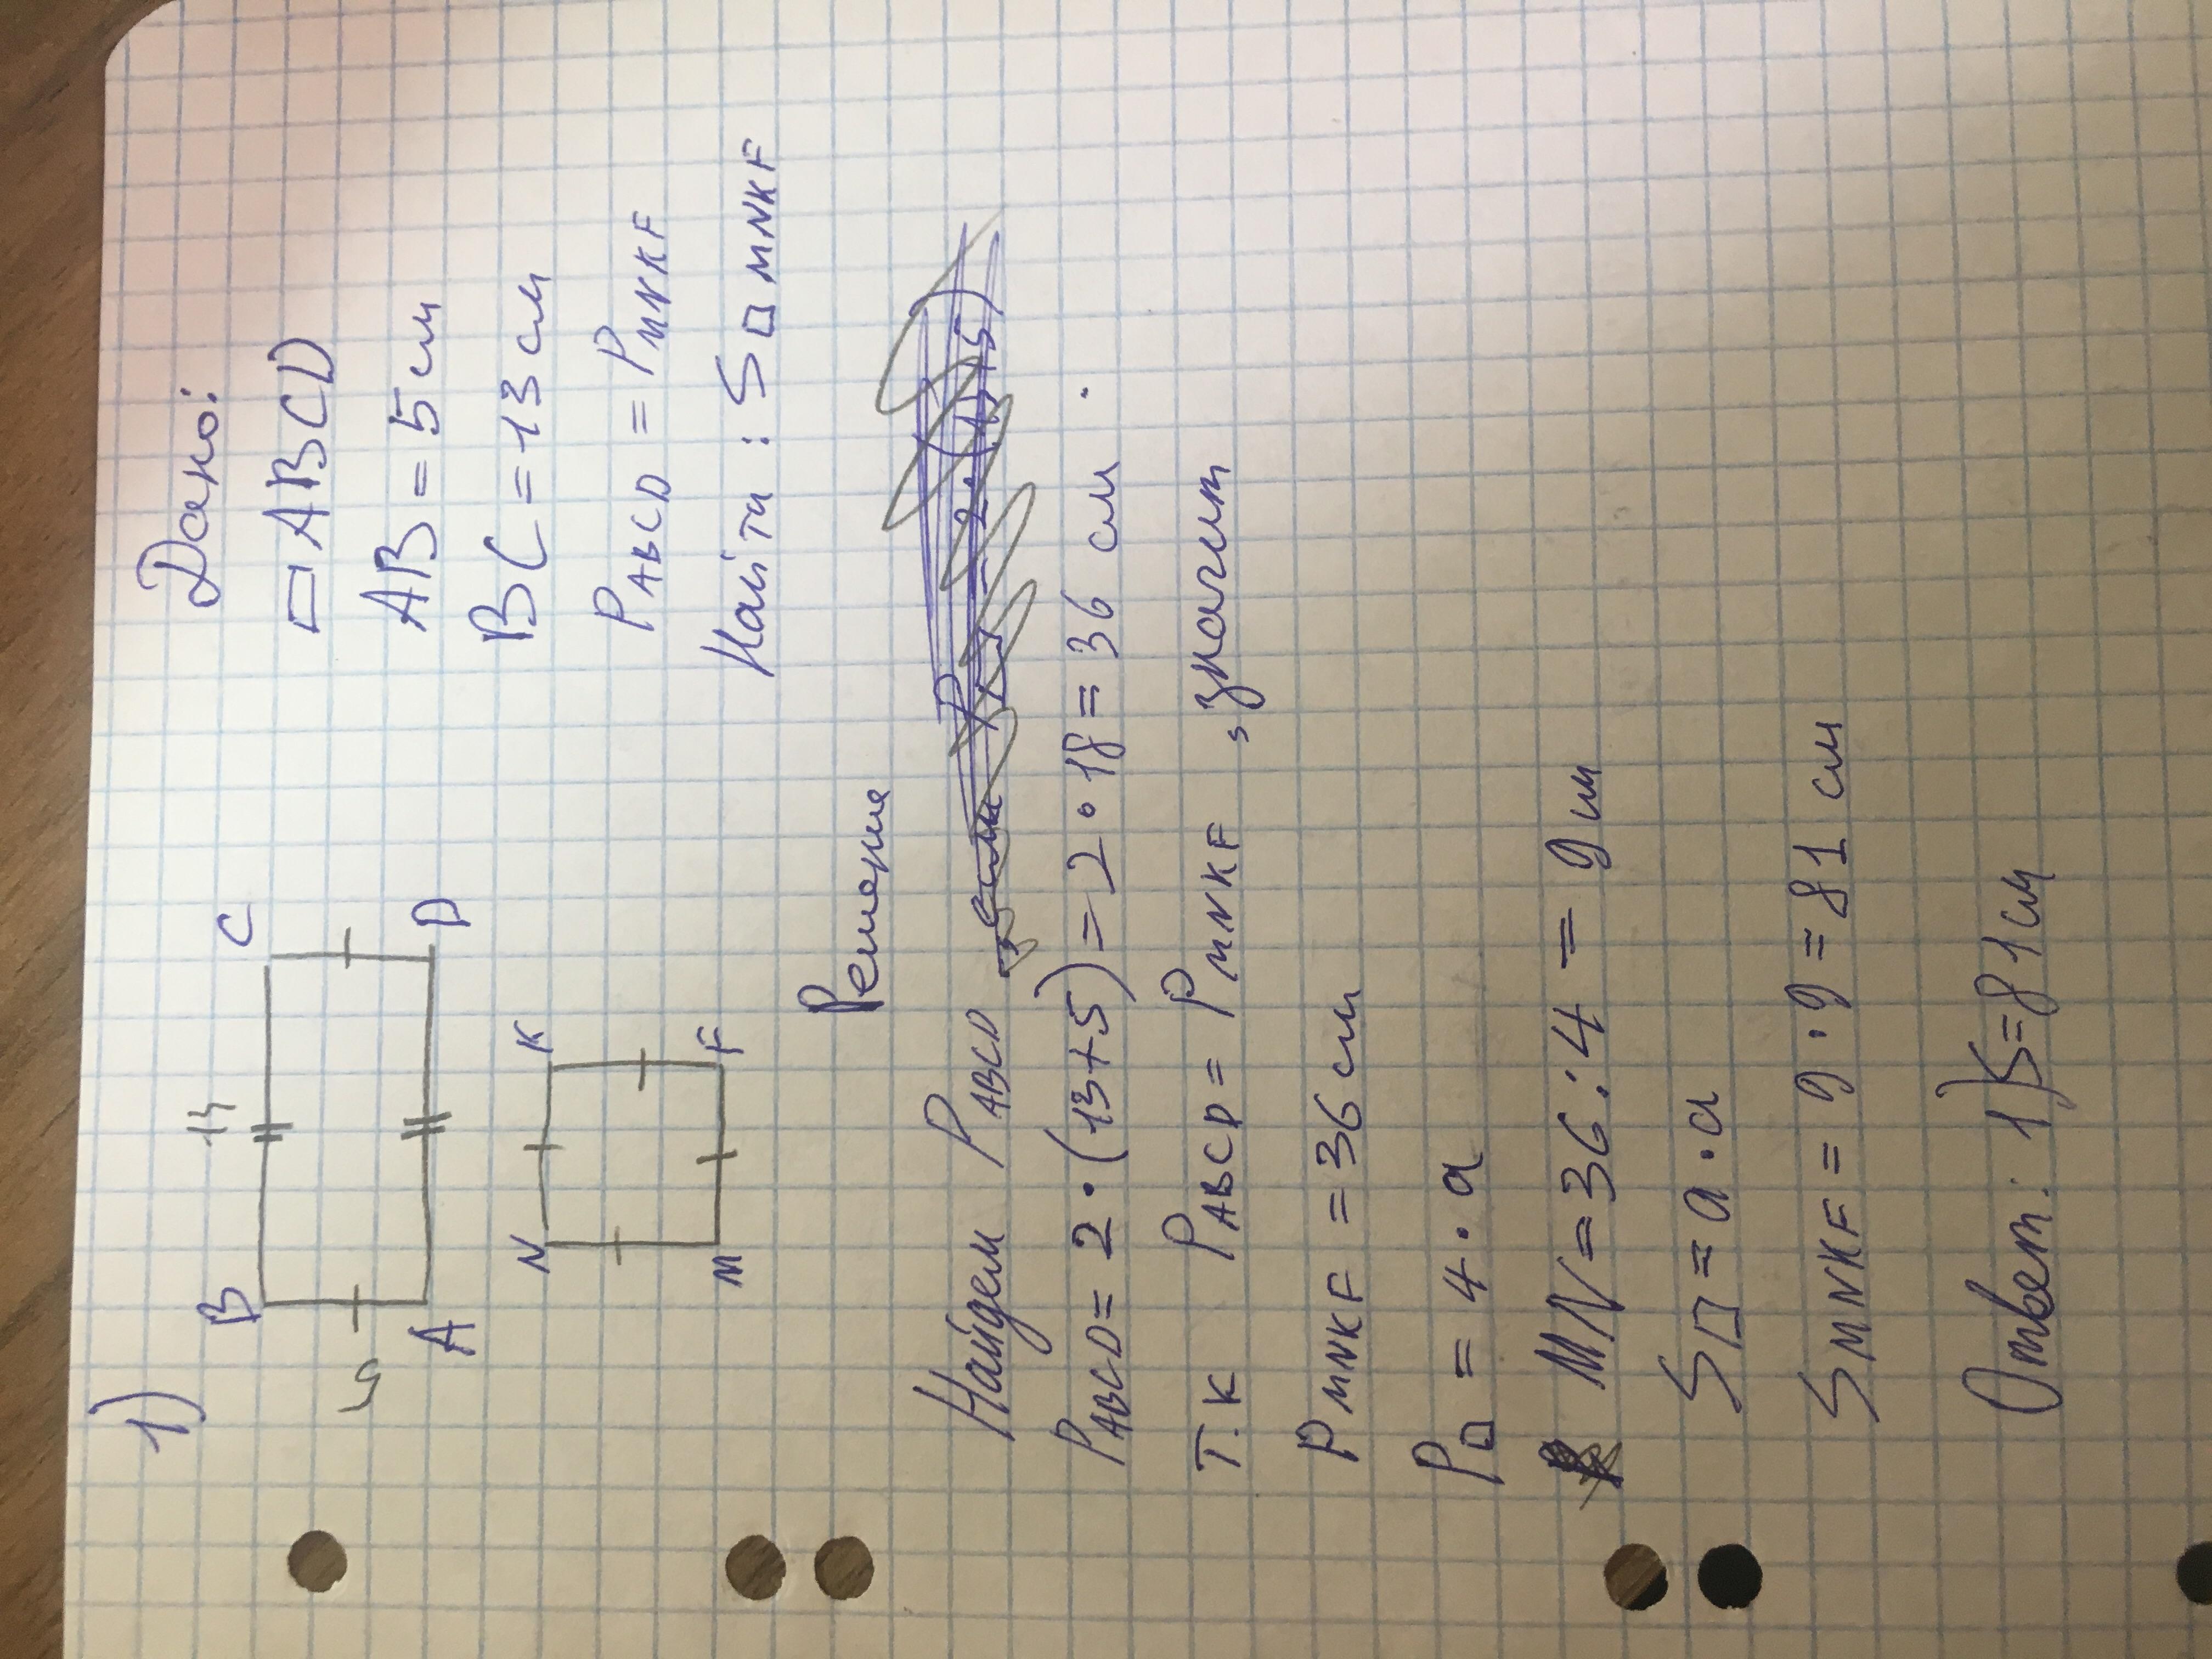 1)
B C
13
5
A D
N K
M F
Дано:
▭ ABCD
AB = 5 см
BC = 13 см
P ABCD = P MNKF
Найти : S □ MNKF
Решение
Найдем P ABCD
P ABCD = 2 · (13+5) = 2 · 18 = 36 см .
Т.К P ABCD = P MNKF , значит
P MNKF = 36 см
P□ = 4 · a
MN = 36 : 4 = 9 см
S□ = a · a
S MNKF = 9 · 9 = 81 см
Ответ: 1) S=81 см